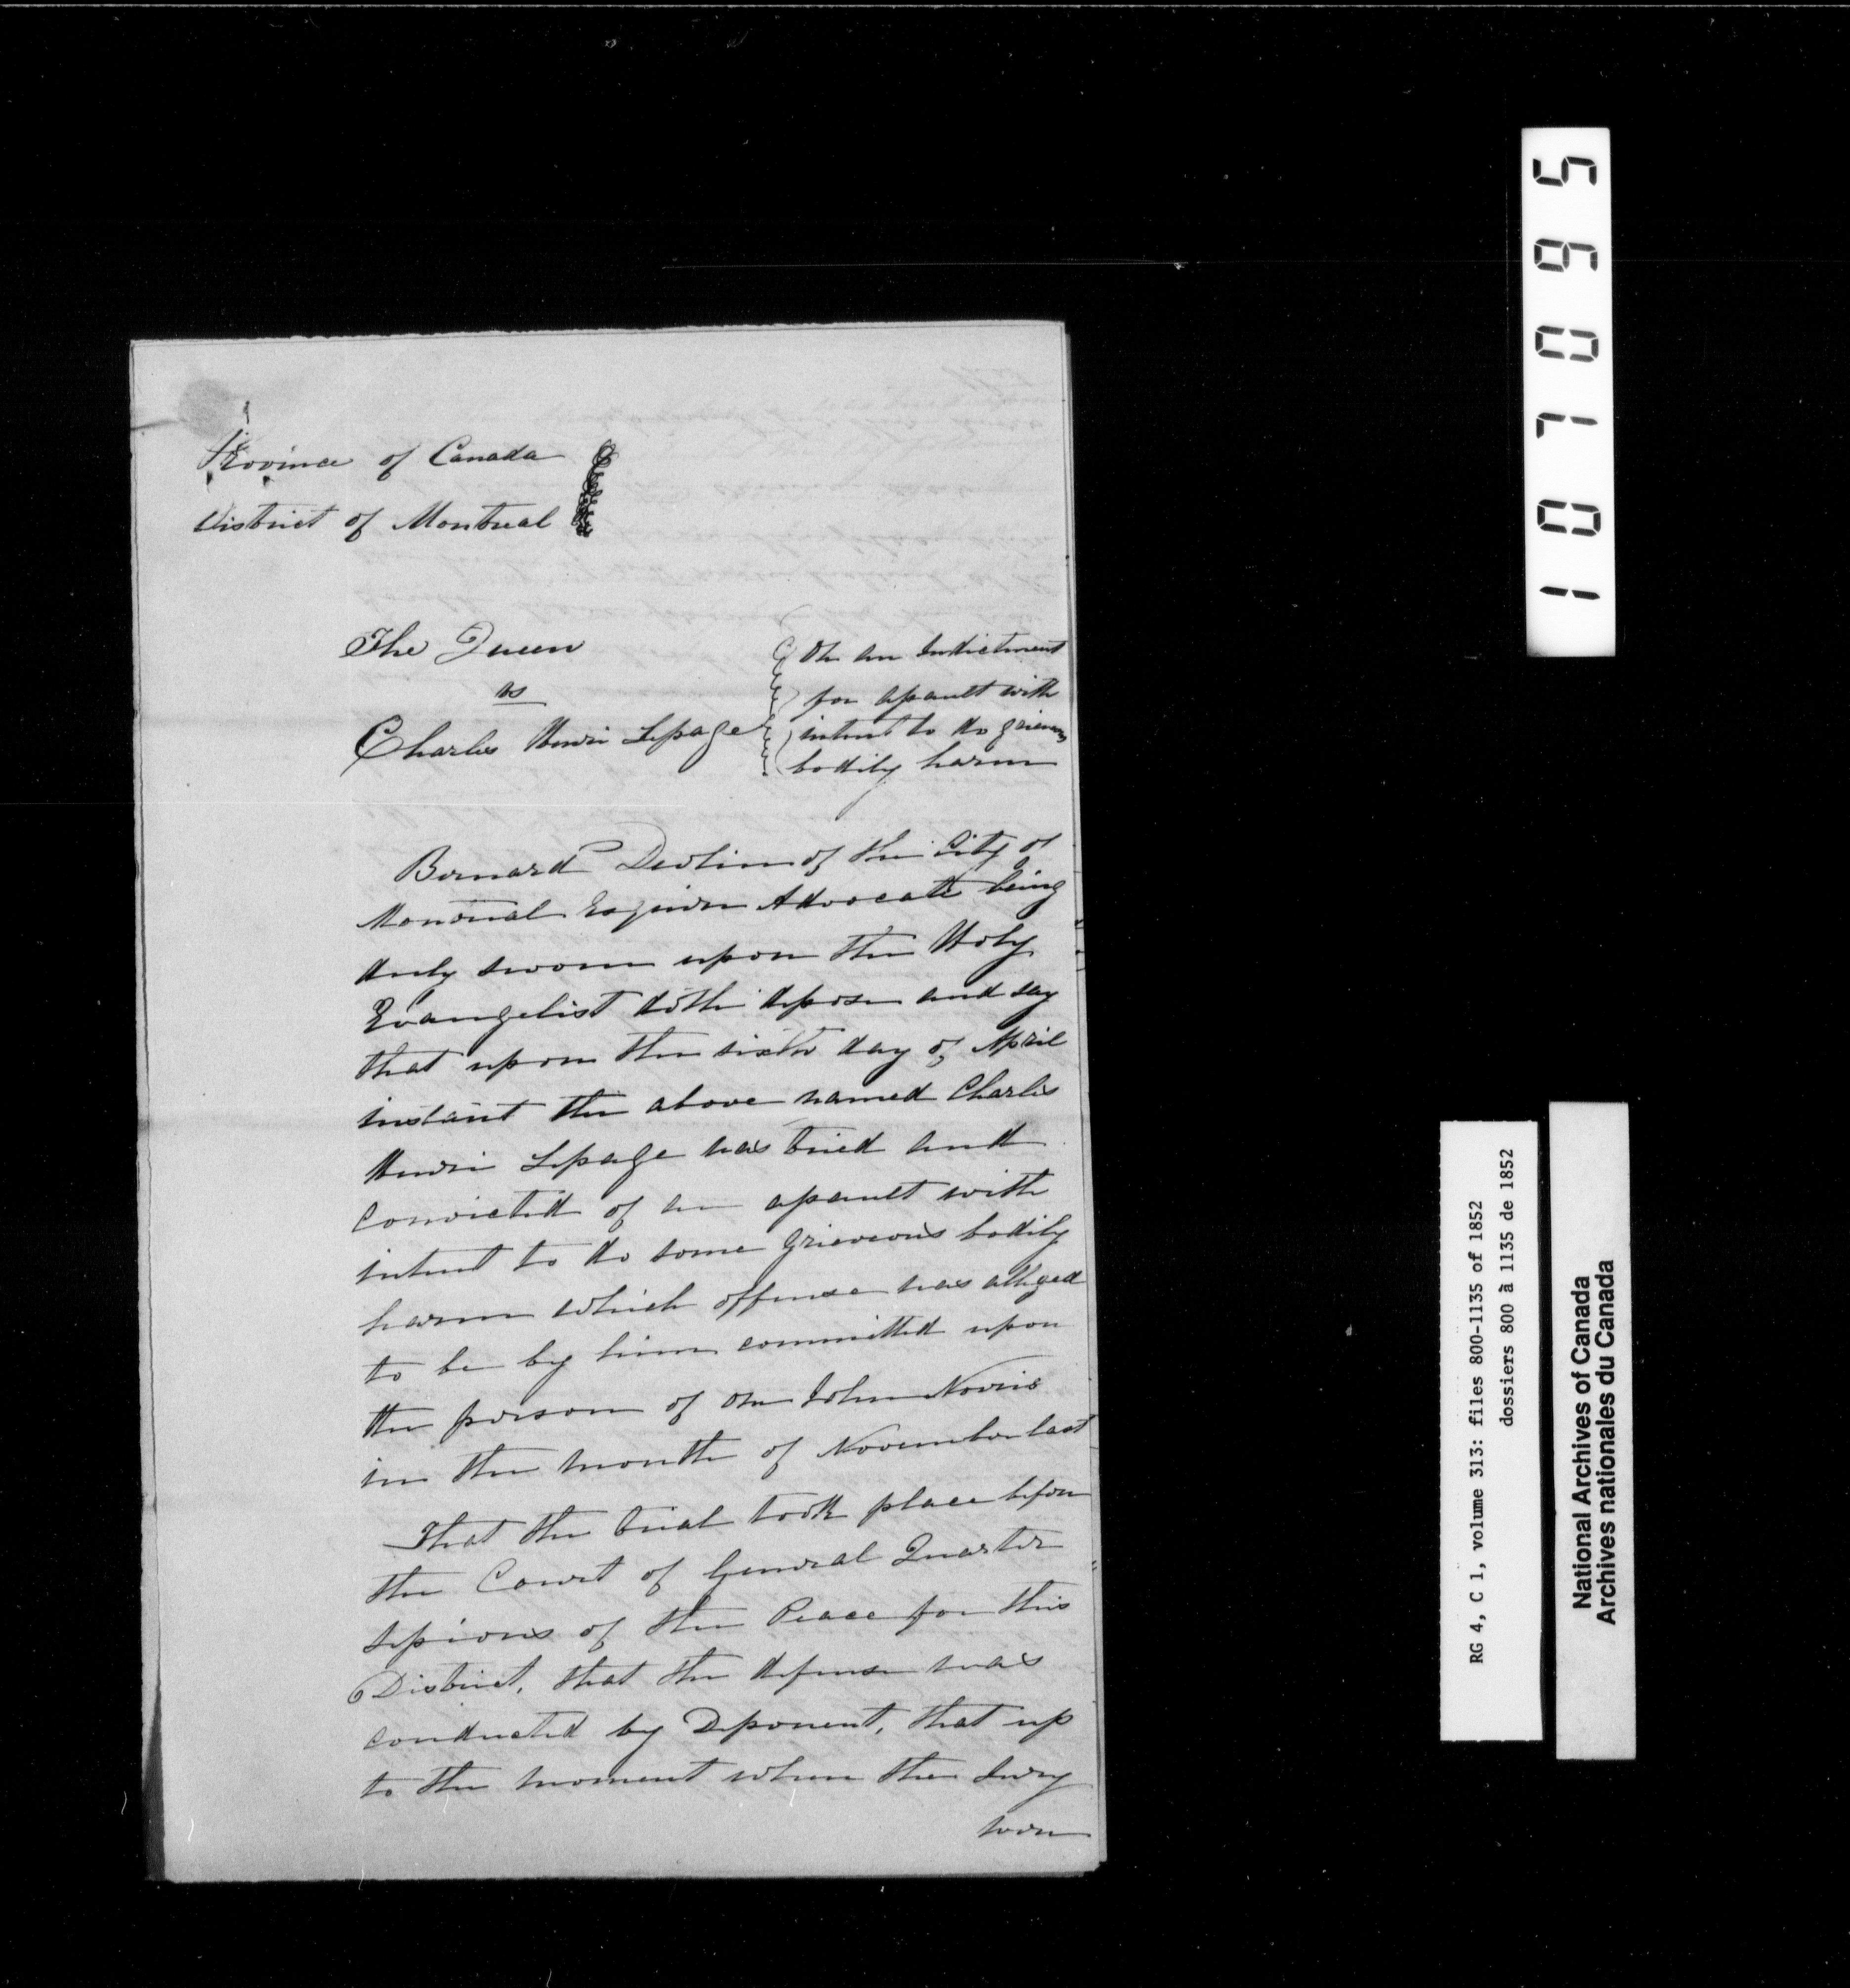 Province of Canada
District of Montreal
The Queen
vs
Charles Henri Lepage
On an Indictment
for assault with
intent to do grievous
bodily harm
Bernard Devlin of the City of
Montreal Esquire Advocate being
duly sworn upon the Holy
Evangelist doth depose and say
that upon the sixth day of April
instant the above named Charles
Henri Lepage was tried and
convicted of an assault with
intent to do some grieveous bodily
harm which offense was alleged
to be by him committed upon
the person of one John Norris
in the month of November last
That the trial took place before
the Court of General Quarter
Sessions of the Peace for this
District, that the defense was
conducted by Deponent, that up
to the moment when the Jury
were
107095
RG 4, C 1, volume 313: files 800-1135 of 1852
dossiers 800 à 1135 de 1852
National Archives of Canada
Archives nationales du Canada